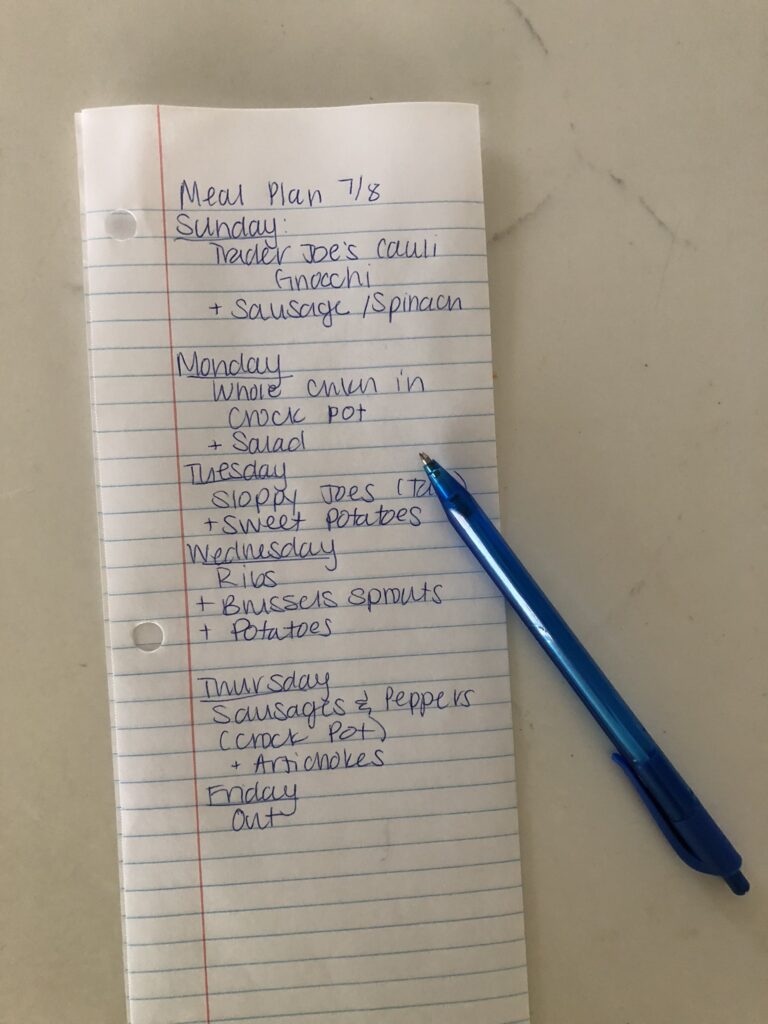 Meal Plan 7/8
Sunday:
Trader Joe's Cauli
Gnocchi
+ Sausage / Spinach
Monday
Whole chkn in
Crock Pot
+ Salad
Tuesday
Sloppy Joes
+ Sweet Potatoes
Wednesday
Ribs
+ Brussels Sprouts
+ Potatoes
Thursday
Sausages & Peppers
(Crock Pot)
+ Artichokes
Friday
Out